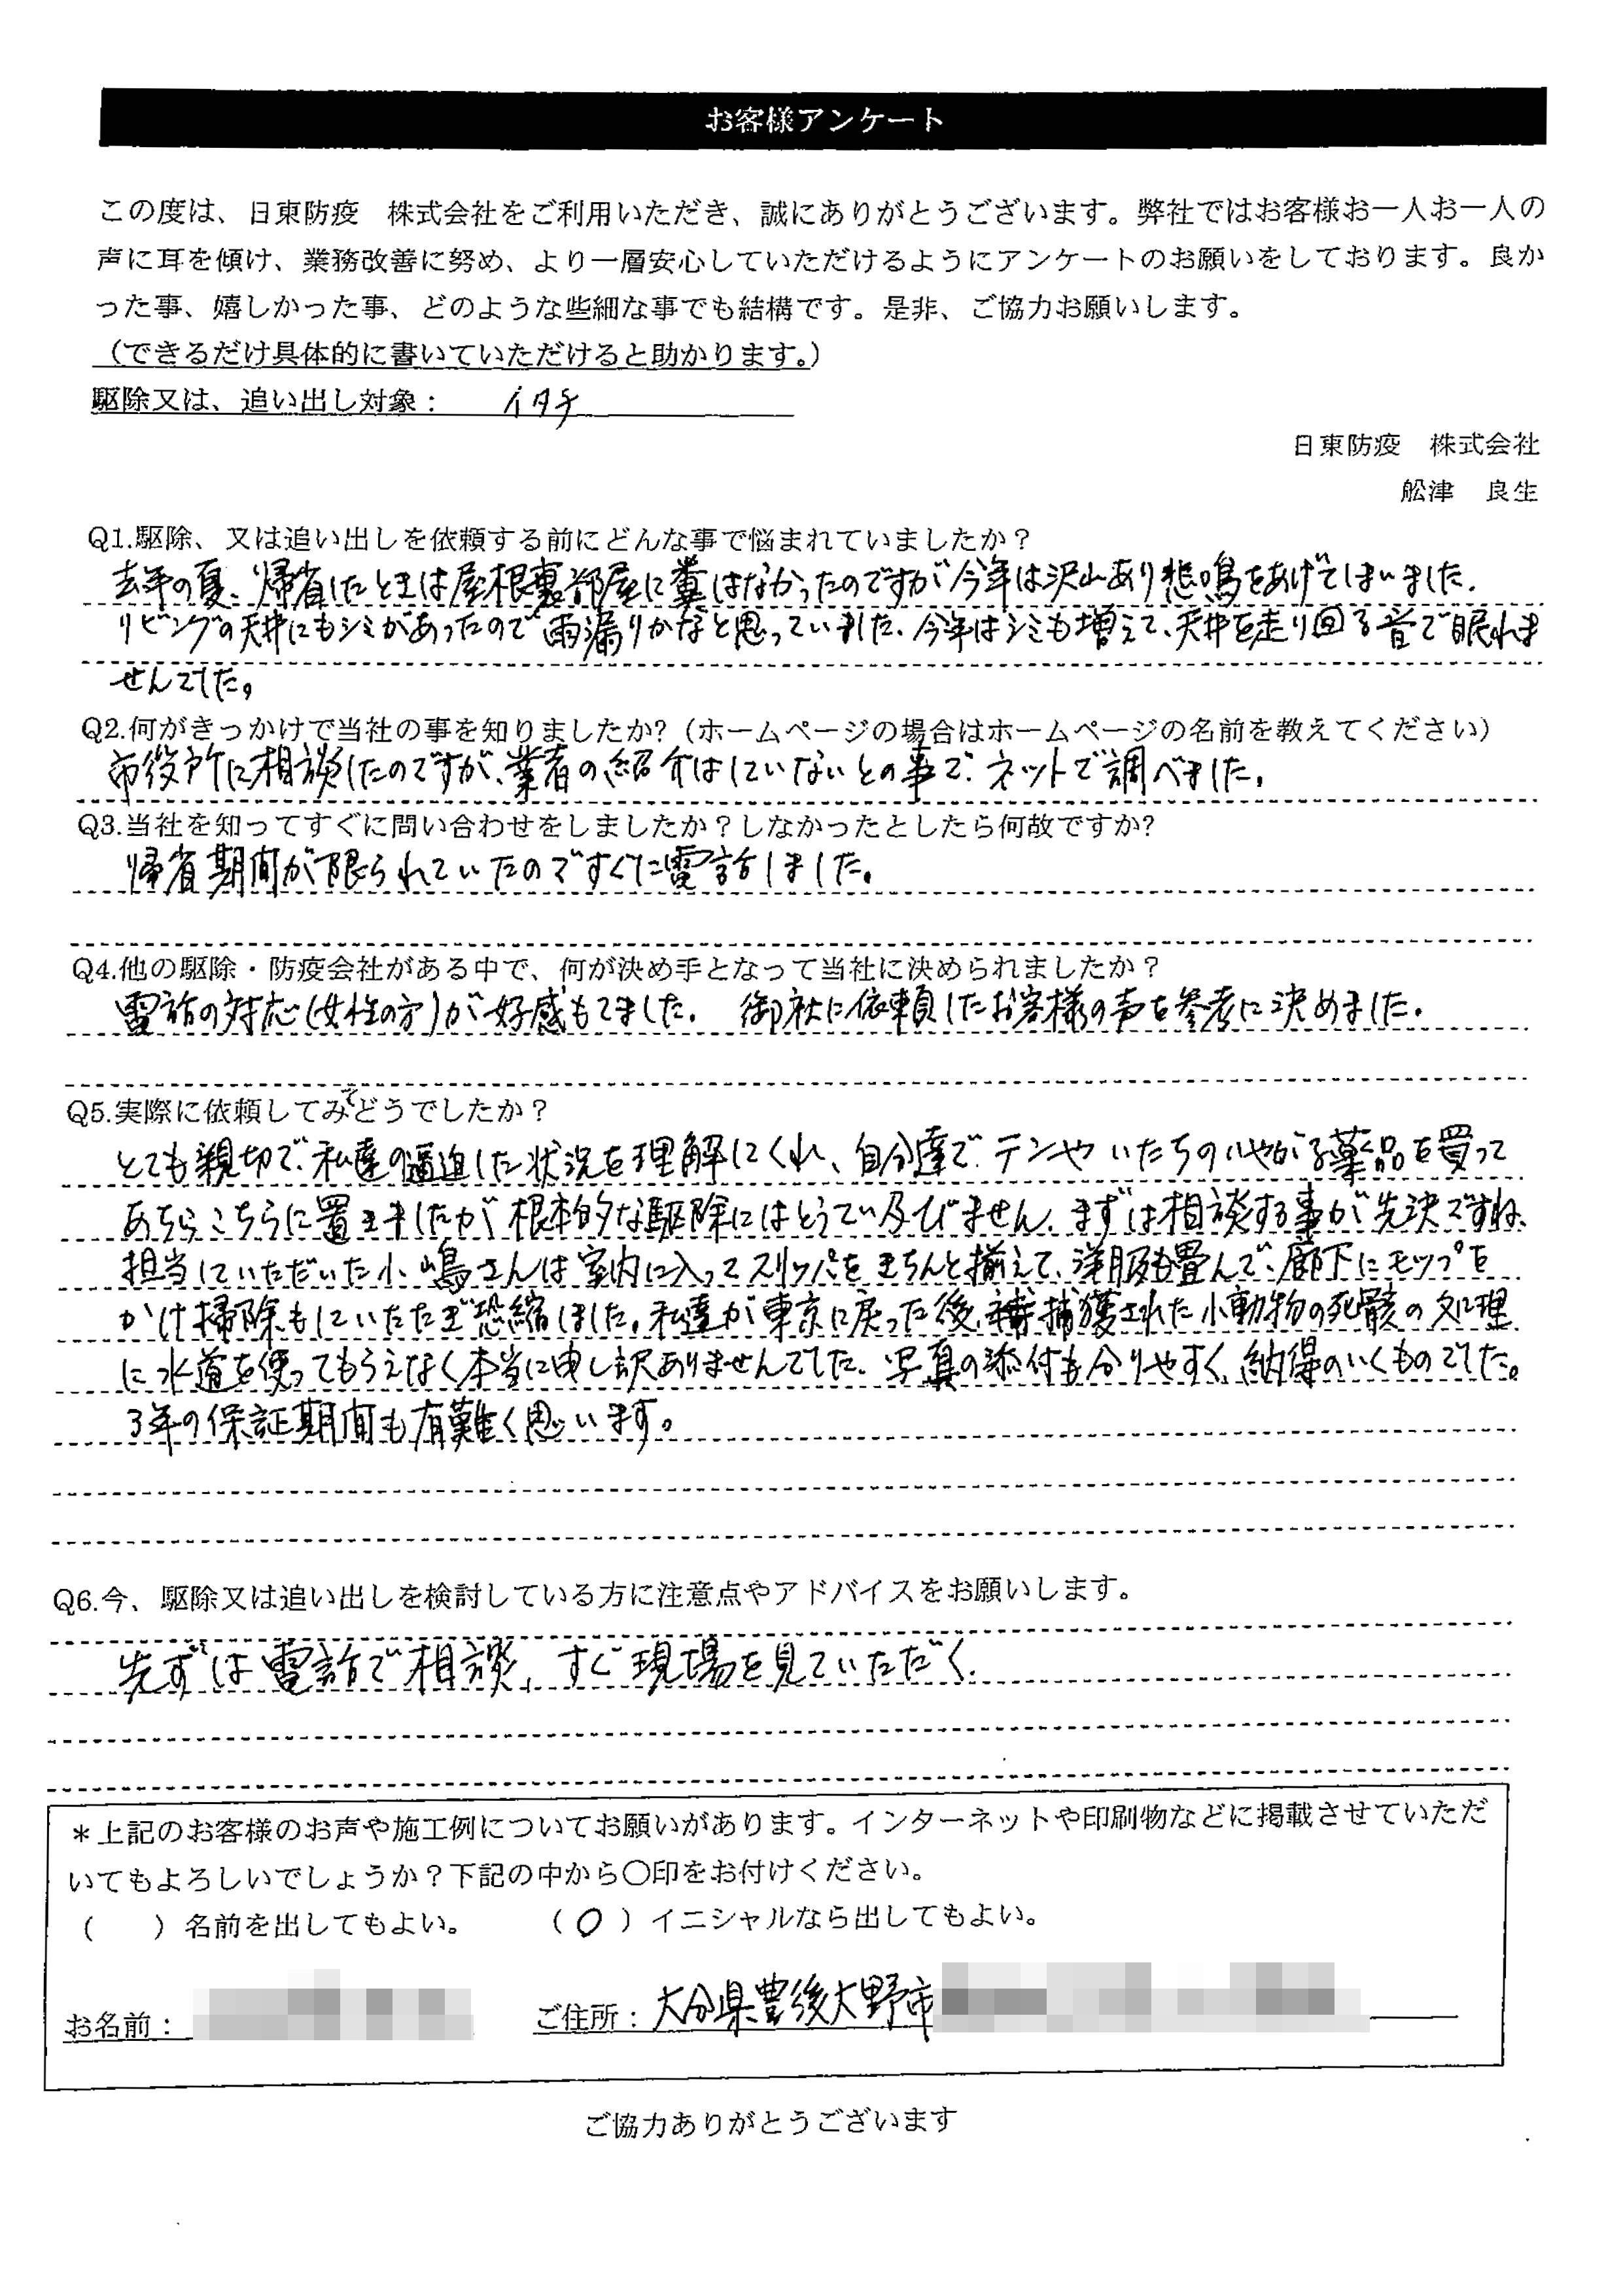 お客様アンケート
この度は、日東防疫　株式会社をご利用いただき、誠にありがとうございます。弊社ではお客様お一人お一人の
声に耳を傾け、業務改善に努め、より一層安心していただけるようにアンケートのお願いをしております。良か
った事、嬉しかった事、どのような些細な事でも結構です。是非、ご協力お願いします。
（できるだけ具体的に書いていただけると助かります。）
駆除又は、追い出し対象：　イタチ
日東防疫　株式会社
舩津　良生
Q1.駆除、又は追い出しを依頼する前にどんな事で悩まれていましたか？
去年の夏、帰省したときは屋根裏部屋に糞はなかったのですが今年は沢山あり悲鳴をあげてしまいました。
リビングの天井にもシミがあったので雨漏りかなと思っていました。今年はシミも増えて、天井を走り回る音で眠れま
せんでした。
Q2.何がきっかけで当社の事を知りましたか?（ホームページの場合はホームページの名前を教えてください）
市役所に相談したのですが、業者の紹介はしていないとの事で、ネットで調べました。
Q3.当社を知ってすぐに問い合わせをしましたか？しなかったとしたら何故ですか?
帰省期間が限られていたのですぐに電話しました。
Q4.他の駆除・防疫会社がある中で、何が決め手となって当社に決められましたか？
電話の対応(女性の方)が好感もてました。　御社に依頼したお客様の声を参考に決めました。
Q5.実際に依頼してみてどうでしたか？
とても親切で、私達の逼迫した状況を理解してくれ、自分達で、テンやいたちのいやがる薬品を買って
あちらこちらに置きましたが根本的な駆除にはとうてい及びません。まずは相談する事が先決ですね。
担当していただいた小嶋さんは室内に入ってスリッパをきちんと揃えて、洋服も畳んで、廊下にモップを
かけ掃除もしていただき恐縮しました。私達が東京に戻った後、捕獲された小動物の死骸の処理
に水道を使ってもらえなく本当に申し訳ありませんでした。写真の添付も分りやすく、納得のいくものでした。
3年の保証期間も有難く思います。
Q6.今、駆除又は追い出しを検討している方に注意点やアドバイスをお願いします。
先ずは電話で相談、すぐ現場を見ていただく。
＊上記のお客様のお声や施工例についてお願いがあります。インターネットや印刷物などに掲載させていただ
いてもよろしいでしょうか？下記の中から〇印をお付けください。
（　　）名前を出してもよい。　　（〇）イニシャルなら出してもよい。
お名前：　ご住所：大分県豊後大野市
ご協力ありがとうございます